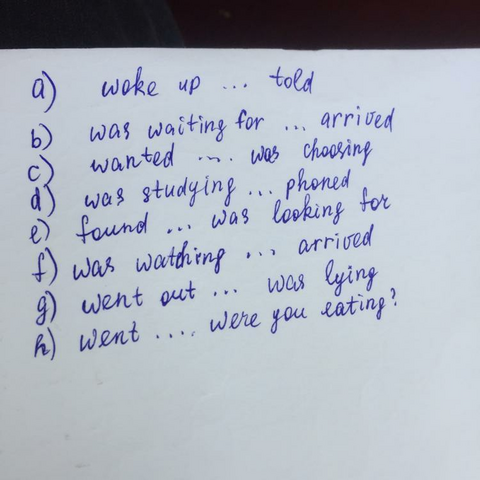 a) woke up ... told
b) was waiting for ... arrived
c) wanted ... was choosing
d) was studying ... phoned
e) found ... was looking for
f) was watching ... arrived
g) went out ... was lying
h) went .... were you eating?